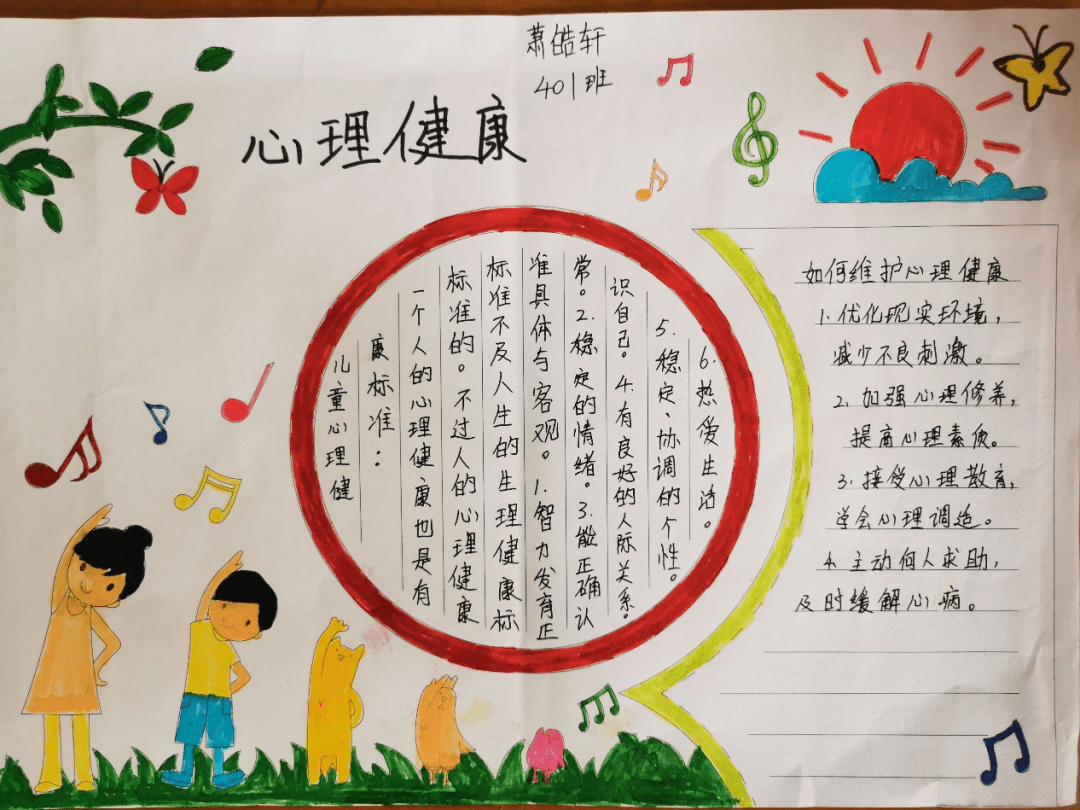 萧皓轩
401班
心理健康
儿童心理健
康标准：
一个人的心理健康也是有
标准的。不过人的心理健康
标准不及人生的生理健康标
准具体与客观。1.智力发育正
常。2.稳定的情绪。3.能正确认
识自己。4.有良好的人际关系。
5.稳定、协调的个性。
6.热爱生活。
如何维护心理健康
1.优化现实环境，
减少不良刺激。
2.加强心理修养，
提高心理素质。
3.接受心理教育，
学会心理调适。
4.主动向人求助，
及时缓解心病。